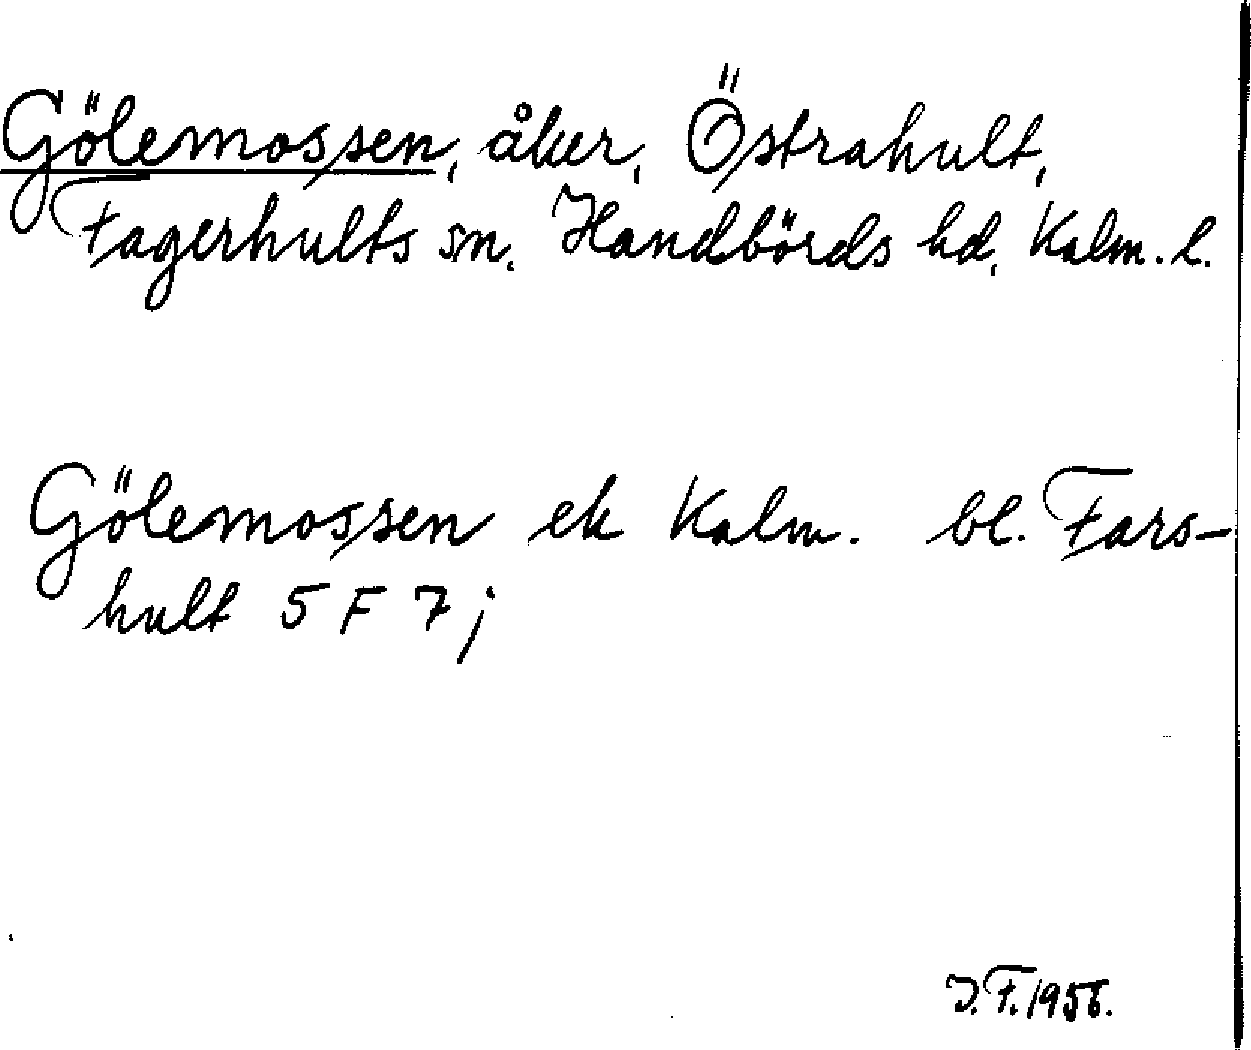 Gölemossen, åker, Östrahult,
Fagerhults sn. Handbörds hd, Kalm. l.
Gölemossen ek Kalm. bl. Fars-
hult 5 F 7 j
J.F. 1956.